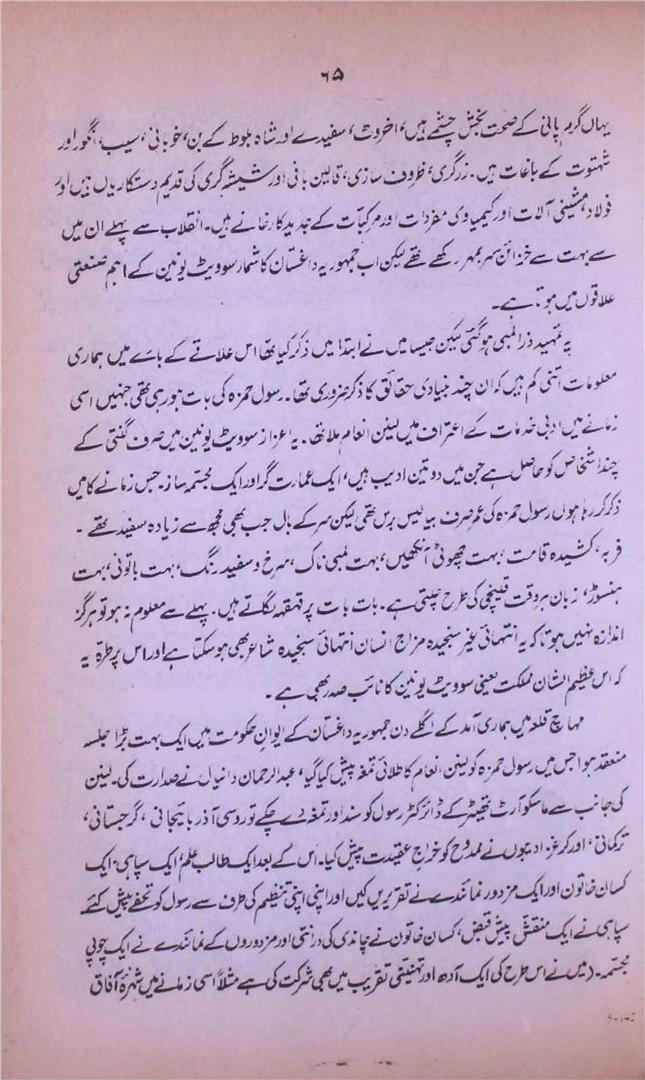 ۶۵
یہاں گرم پانی کے صحت بخش چشمے ہیں، اخروٹ، سفیدے اور شاہ بلوط کے بن، خوبانی، سیب، انگور اور
شہتوت کے باغات ہیں۔ زرگری، ظروف سازی، قالین بافی اور شیشہ گری کی قدیم دستکاریاں ہیں اور
فولاد، مشینی آلات اور کیمیاوی مفردات اور مرکبات کے جدید کارخانے ہیں۔ انقلاب سے پہلے ان میں
سے بہت سے خزائن سر بمہر رکھے تھے لیکن اب جمہوریہ داغستان کا شمار سوویٹ یونین کے اہم صنعتی
علاقوں میں ہوتا ہے۔
یہ تمہید ذرا لمبی ہو گئی لیکن جیسا میں نے ابتدا میں ذکر کیا تھا اس علاقے کے بارے میں ہماری
معلومات اتنی کم ہیں کہ ان چند بنیادی حقائق کا ذکر ضروری تھا۔ رسول حمزہ کی بات ہو رہی تھی جنہیں اسی
زمانے میں ادبی خدمات کے اعتراف میں لینن انعام ملا تھا۔ یہ اعزاز سوویٹ یونین میں صرف گنتی کے
چند اشخاص کو حاصل ہے جن میں دو تین ادیب ہیں، ایک عمارت گر اور ایک مجسمہ ساز۔ جس زمانے کا میں
ذکر کر رہا ہوں رسول حمزہ کی عمر صرف بیالیس برس تھی لیکن سر کے بال جب بھی مجھ سے زیادہ سفید تھے۔
فربہ، کشیدہ قامت، بہت چھوٹی آنکھیں، بہت لمبی ناک، سرخ و سفید رنگ، بہت باتونی، بہت
ہنسوڑ، زبان ہر وقت قینچی کی طرح چلتی ہے۔ بات بات پر قہقہہ لگاتے ہیں۔ پہلے سے معلوم نہ ہو تو ہرگز
اندازہ نہیں ہوتا کہ یہ انتہائی غیر سنجیدہ مزاج انسان انتہائی سنجیدہ شاعر بھی ہو سکتا ہے اور اس پر طرہ یہ
کہ اس عظیم الشان مملکت یعنی سوویٹ یونین کا نائب صدر بھی ہے۔
مہاچ قلعہ میں ہماری آمد کے اگلے دن جمہوریہ داغستان کے ایوان حکومت میں ایک بہت بڑا جلسہ
منعقد ہوا جس میں رسول حمزہ کو لینن انعام کا طلائی تمغہ پیش کیا گیا، عبدالرحمان دانیال نے صدارت کی۔ لینن
کی جانب سے ماسکو آرٹ تھیٹر کے ڈائرکٹر رسول کو سند اور تمغہ دے چکے تو روسی آذربائیجانی، گرجستانی،
ترکمانی، اور کرغز ادیبوں نے ممدوح کو خراج عقیدت پیش کیا۔ اس کے بعد ایک طالب علم، ایک سپاہی، ایک
کسان خاتون اور ایک مزدور نمائندے نے تقریریں کیں اور اپنی اپنی تنظیم کی طرف سے رسول کو تحفے پیش کئے
سپاہی نے ایک منقش پیش قبض، کسان خاتون نے چاندی کی درانتی اور مزدوروں کے نمائندے نے ایک چوبی
مجسمہ۔ (میں نے اس طرح کی ایک آدھ اور تہنیتی تقریب میں بھی شرکت کی ہے مثلاً اسی زمانے میں شہرۂ آفاق